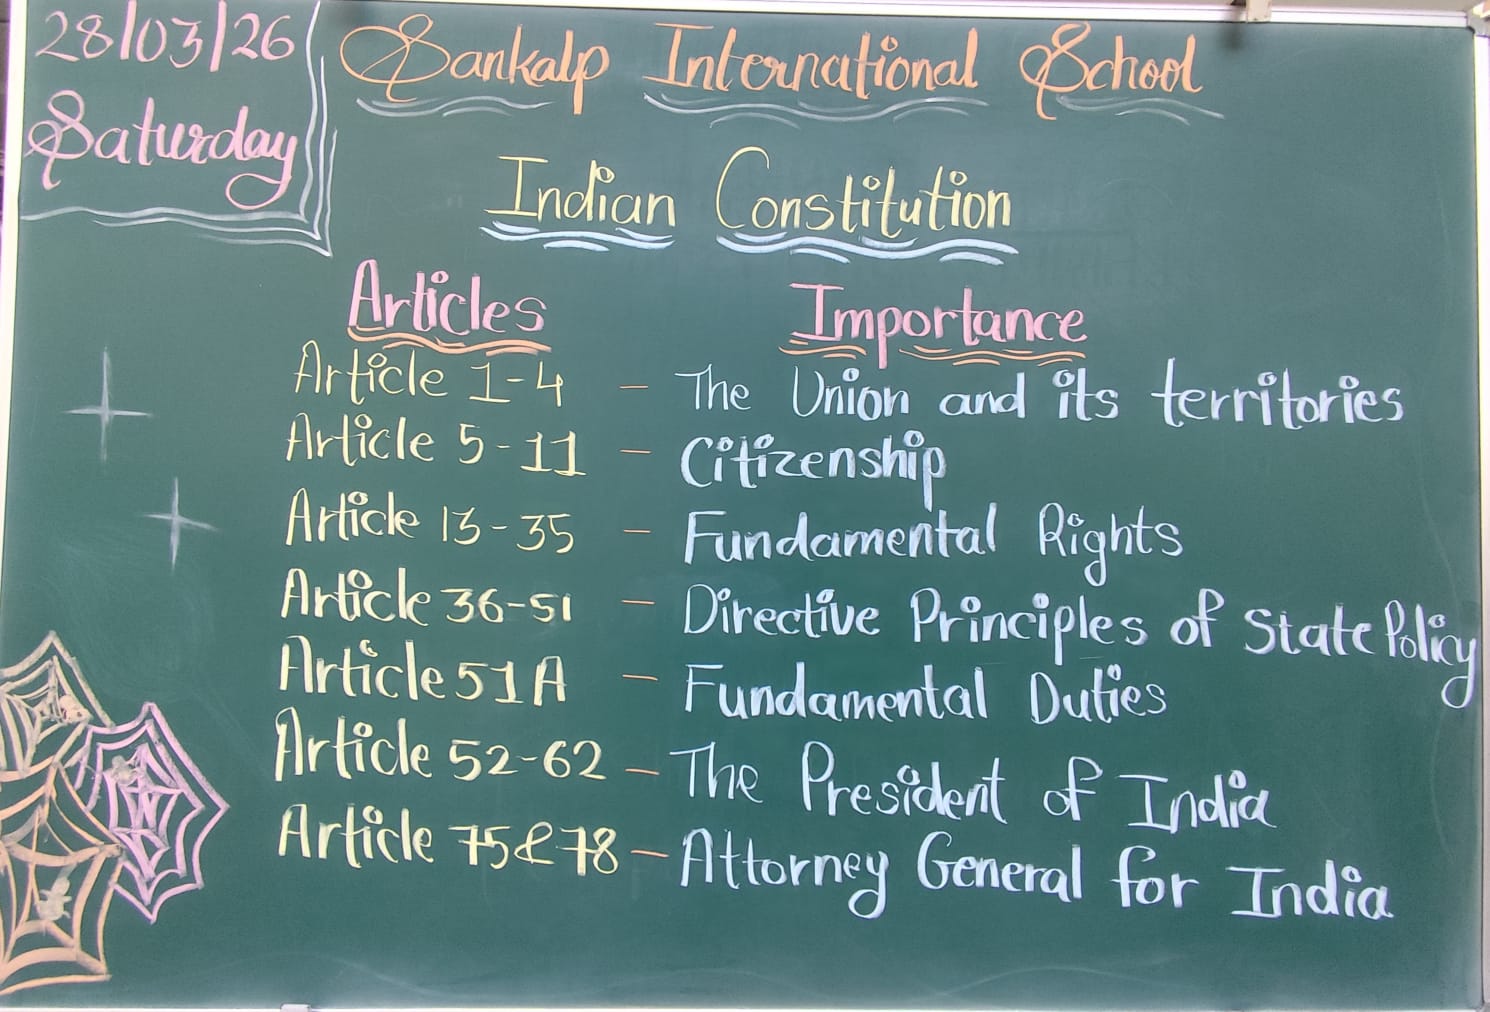 28/03/26
Saturday
Sankalp International School
Indian Constitution
Articles Importance
Article 1-4 - The Union and its territories
Article 5-11 - Citizenship
Article 13-35 - Fundamental Rights
Article 36-51 - Directive Principles of State Policy
Article 51A - Fundamental Duties
Article 52-62 - The President of India
Article 75&78 - Attorney General for India